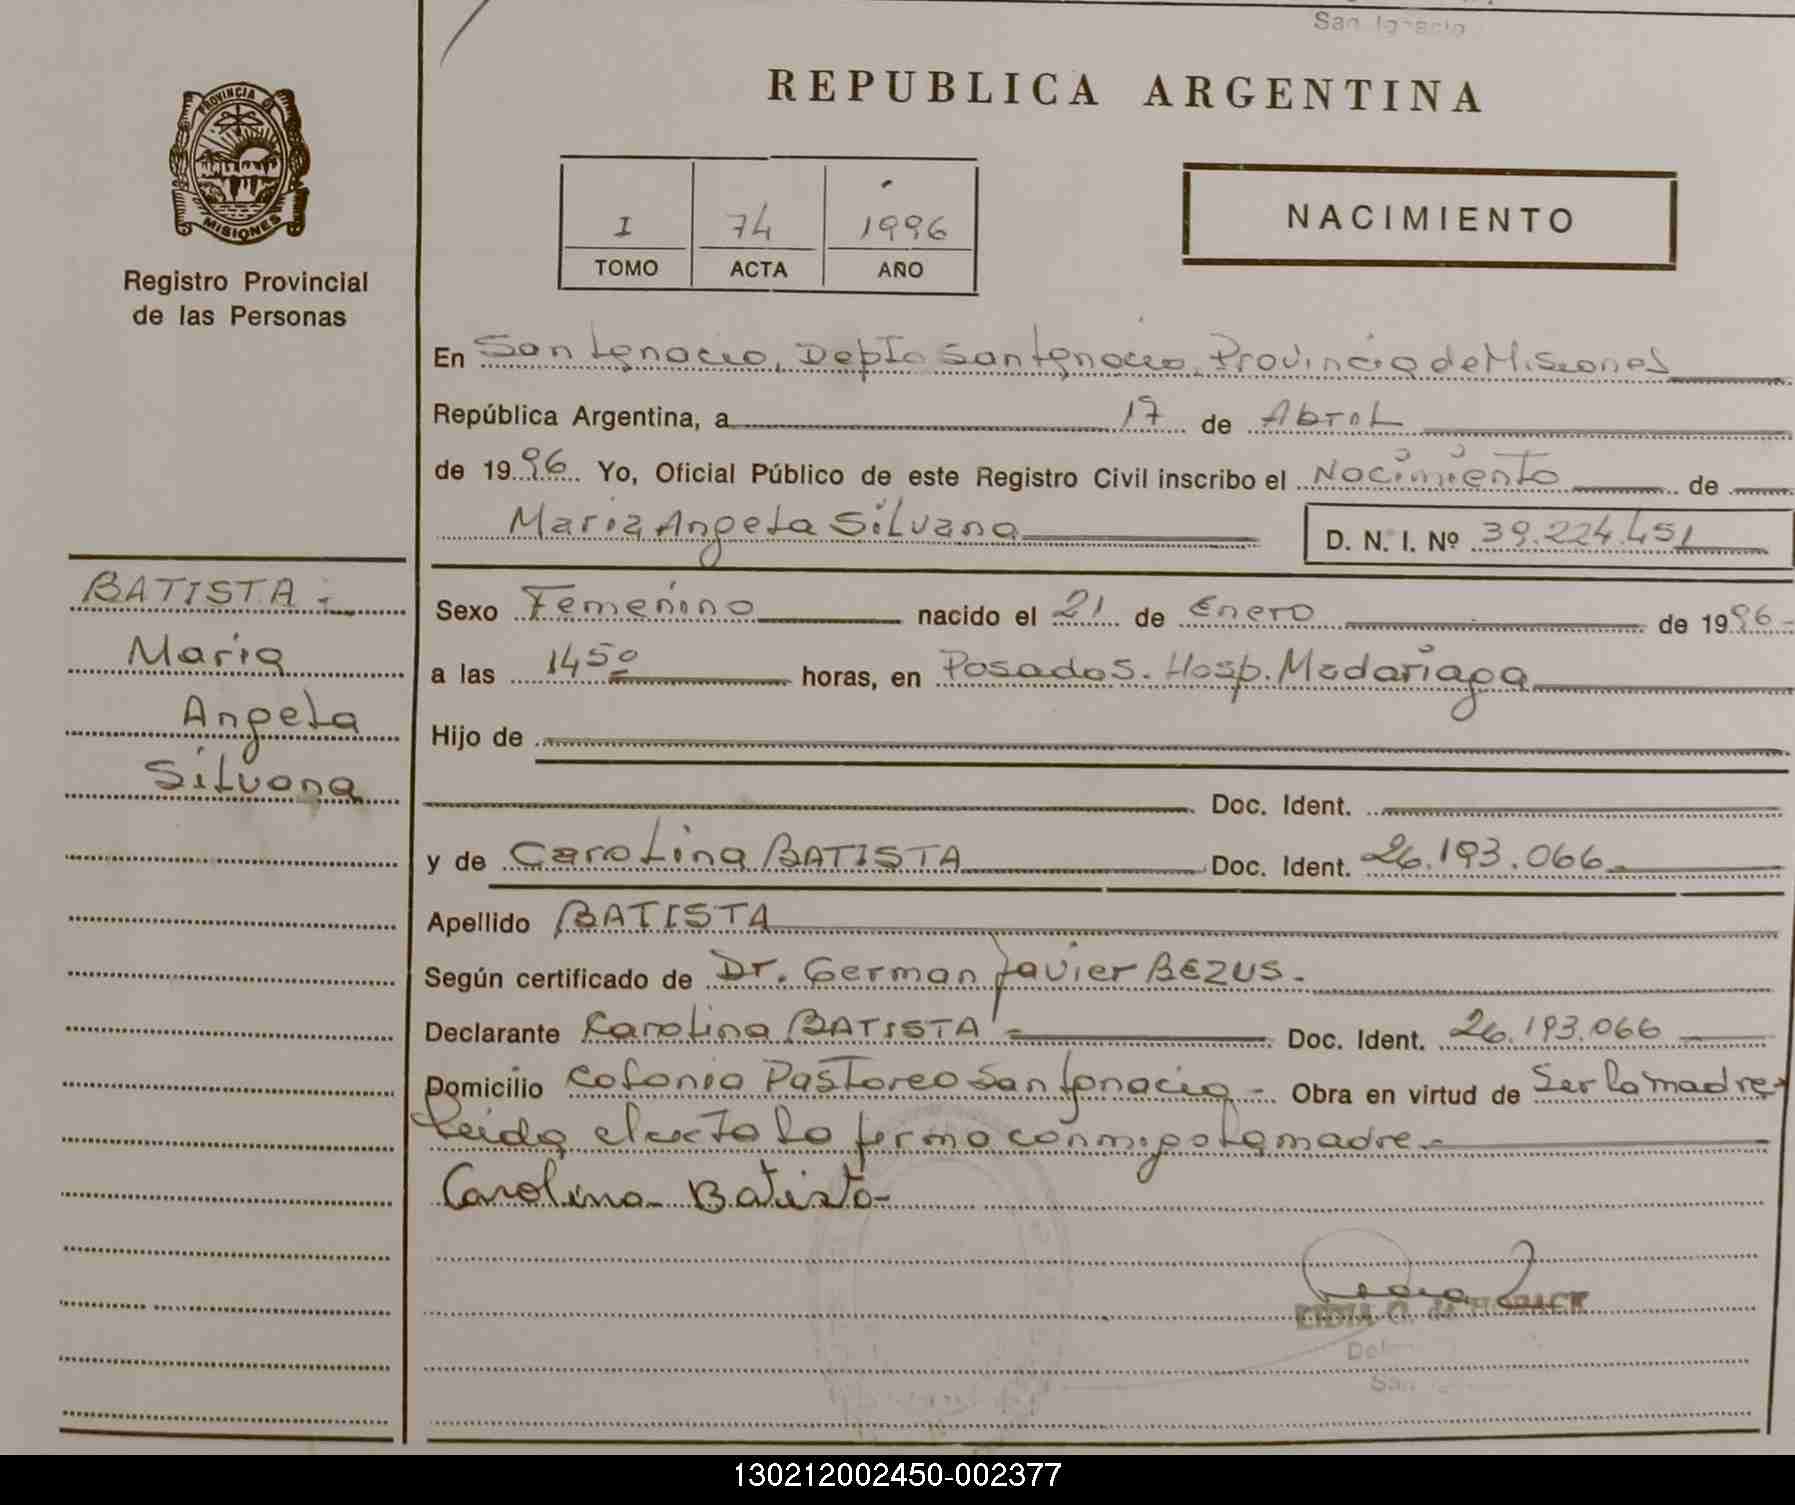 San Ignacio
PROVINCIA D
MISIONES
Registro Provincial
de las Personas
REPUBLICA ARGENTINA
I 74 1996
TOMO ACTA AÑO
NACIMIENTO
En San Ignacio, Depto San Ignacio, Provincia de Misiones
República Argentina, a 17 de Abril
de 1996 Yo, Oficial Público de este Registro Civil inscribo el Nacimiento de
Maria Angela Silvana D. N. I. Nº 39.224.451
BATISTA
Maria
Angela
Silvana
Sexo Femenino nacido el 21 de Enero de 1996-
a las 1450 horas, en Posadas. Hosp. Madariaga
Hijo de
Doc. Ident.
y de Carolina BATISTA Doc. Ident. 26.193.066
Apellido BATISTA
Según certificado de Dr. German Javier BEZUS.
Declarante Carolina BATISTA Doc. Ident. 26.193.066
Domicilio Colonia Pastoreo San Ignacio - Obra en virtud de Ser la madre
Leida el acta la firma conmigo la madre.-
Carolina Batista-
LIDIA G. de
Del
San
130212002450-002377